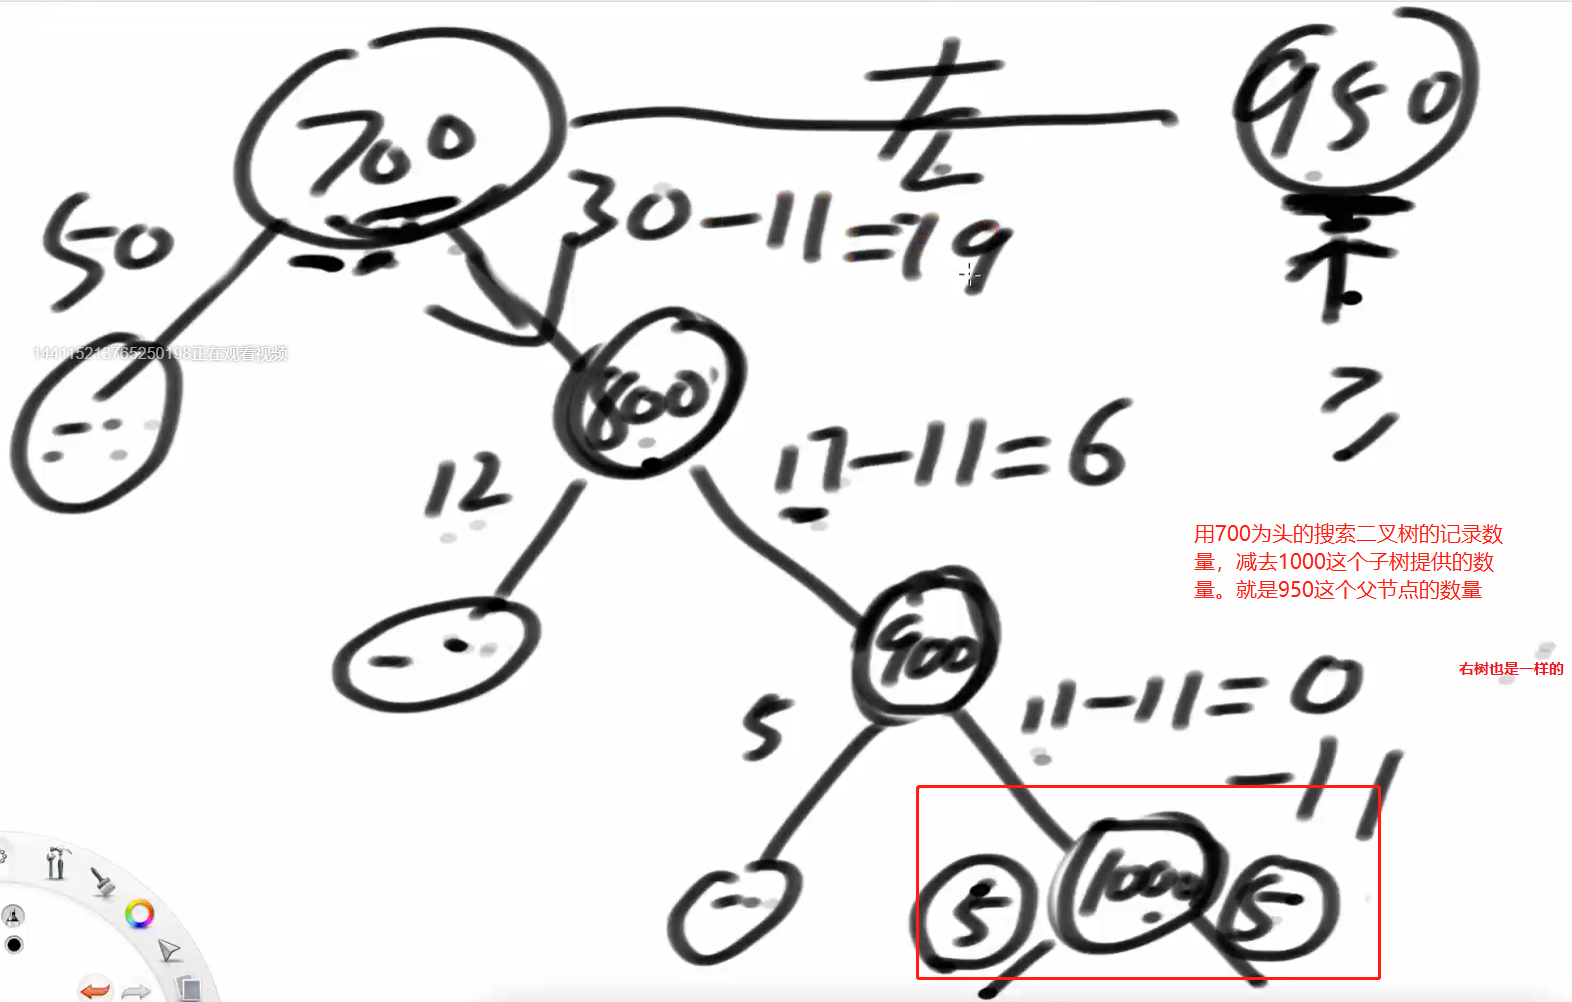 700
左
950
50
30-11=19
不
800
≥
144115213765250198正在观看视频
12
17-11=6
用700为头的搜索二叉树的记录数
量，减去1000这个子树提供的数
量。就是950这个父节点的数量
900
右树也是一样的
11-11=0
5
-11
5
1000
5